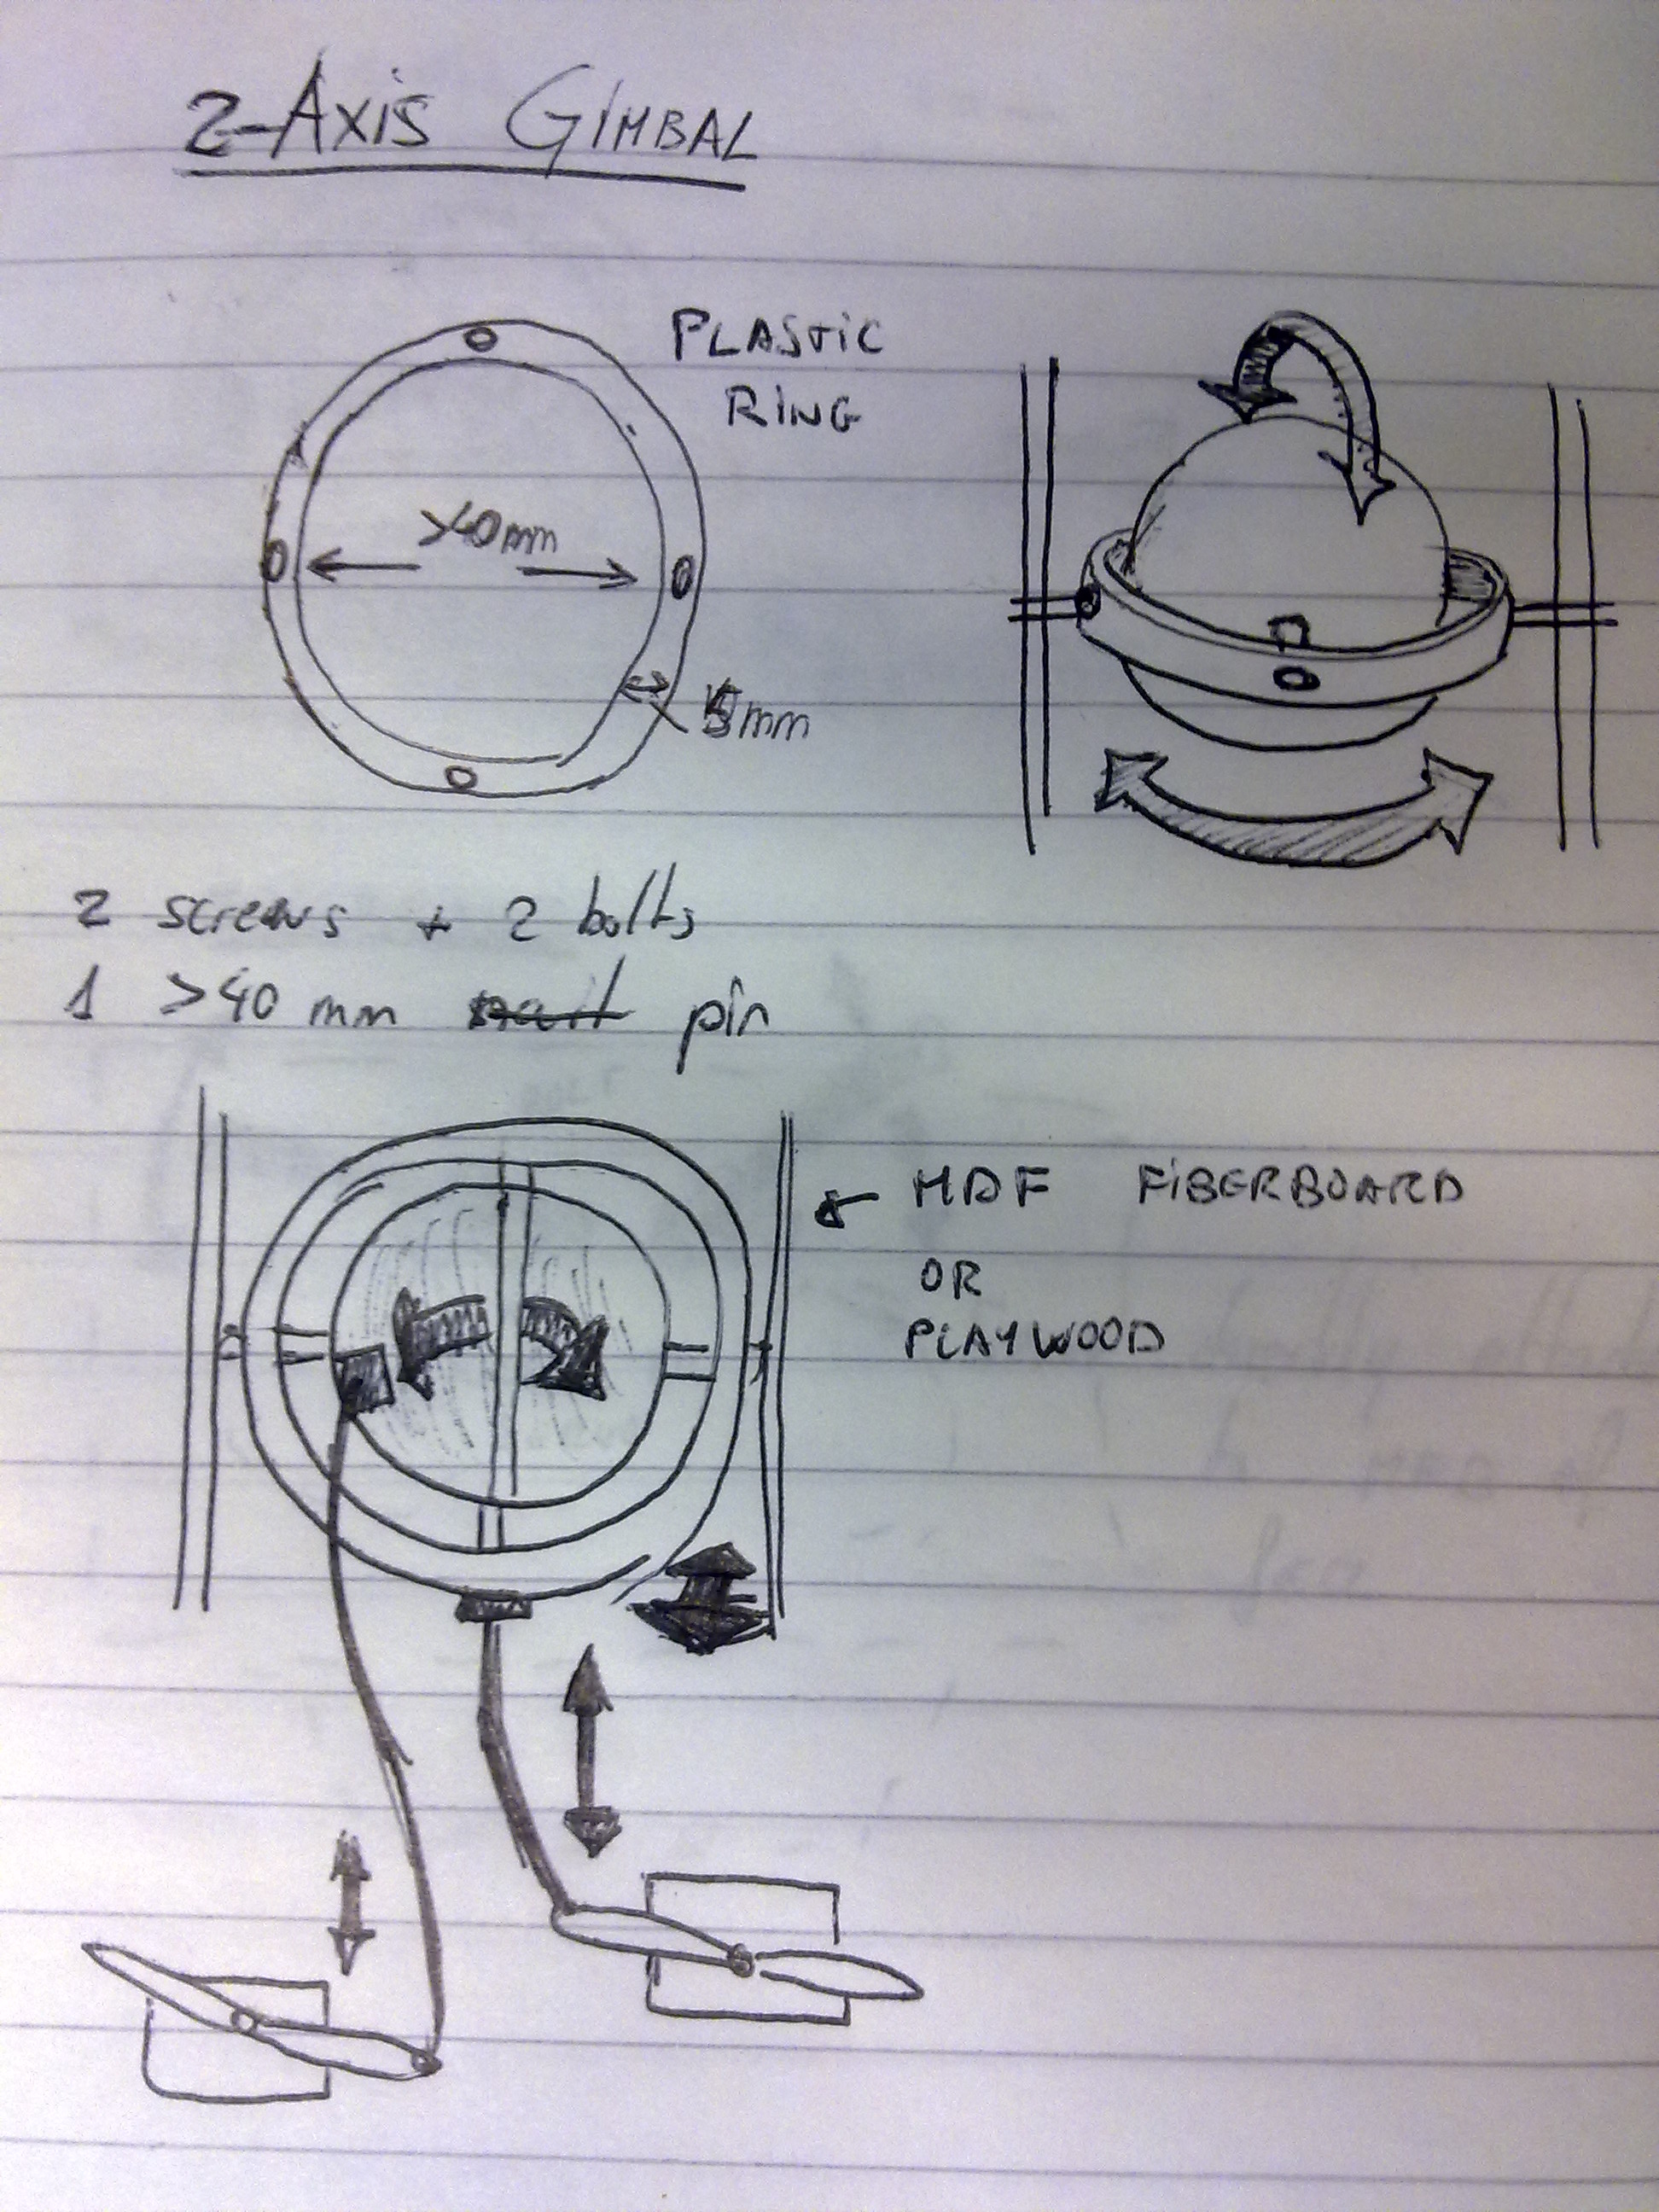 2-AXIS GIMBAL
PLASTIC
RING
>40mm
5mm
2 screws + 2 bolts
1 >40 mm pin
MDF FIBERBOARD
OR
PLAYWOOD